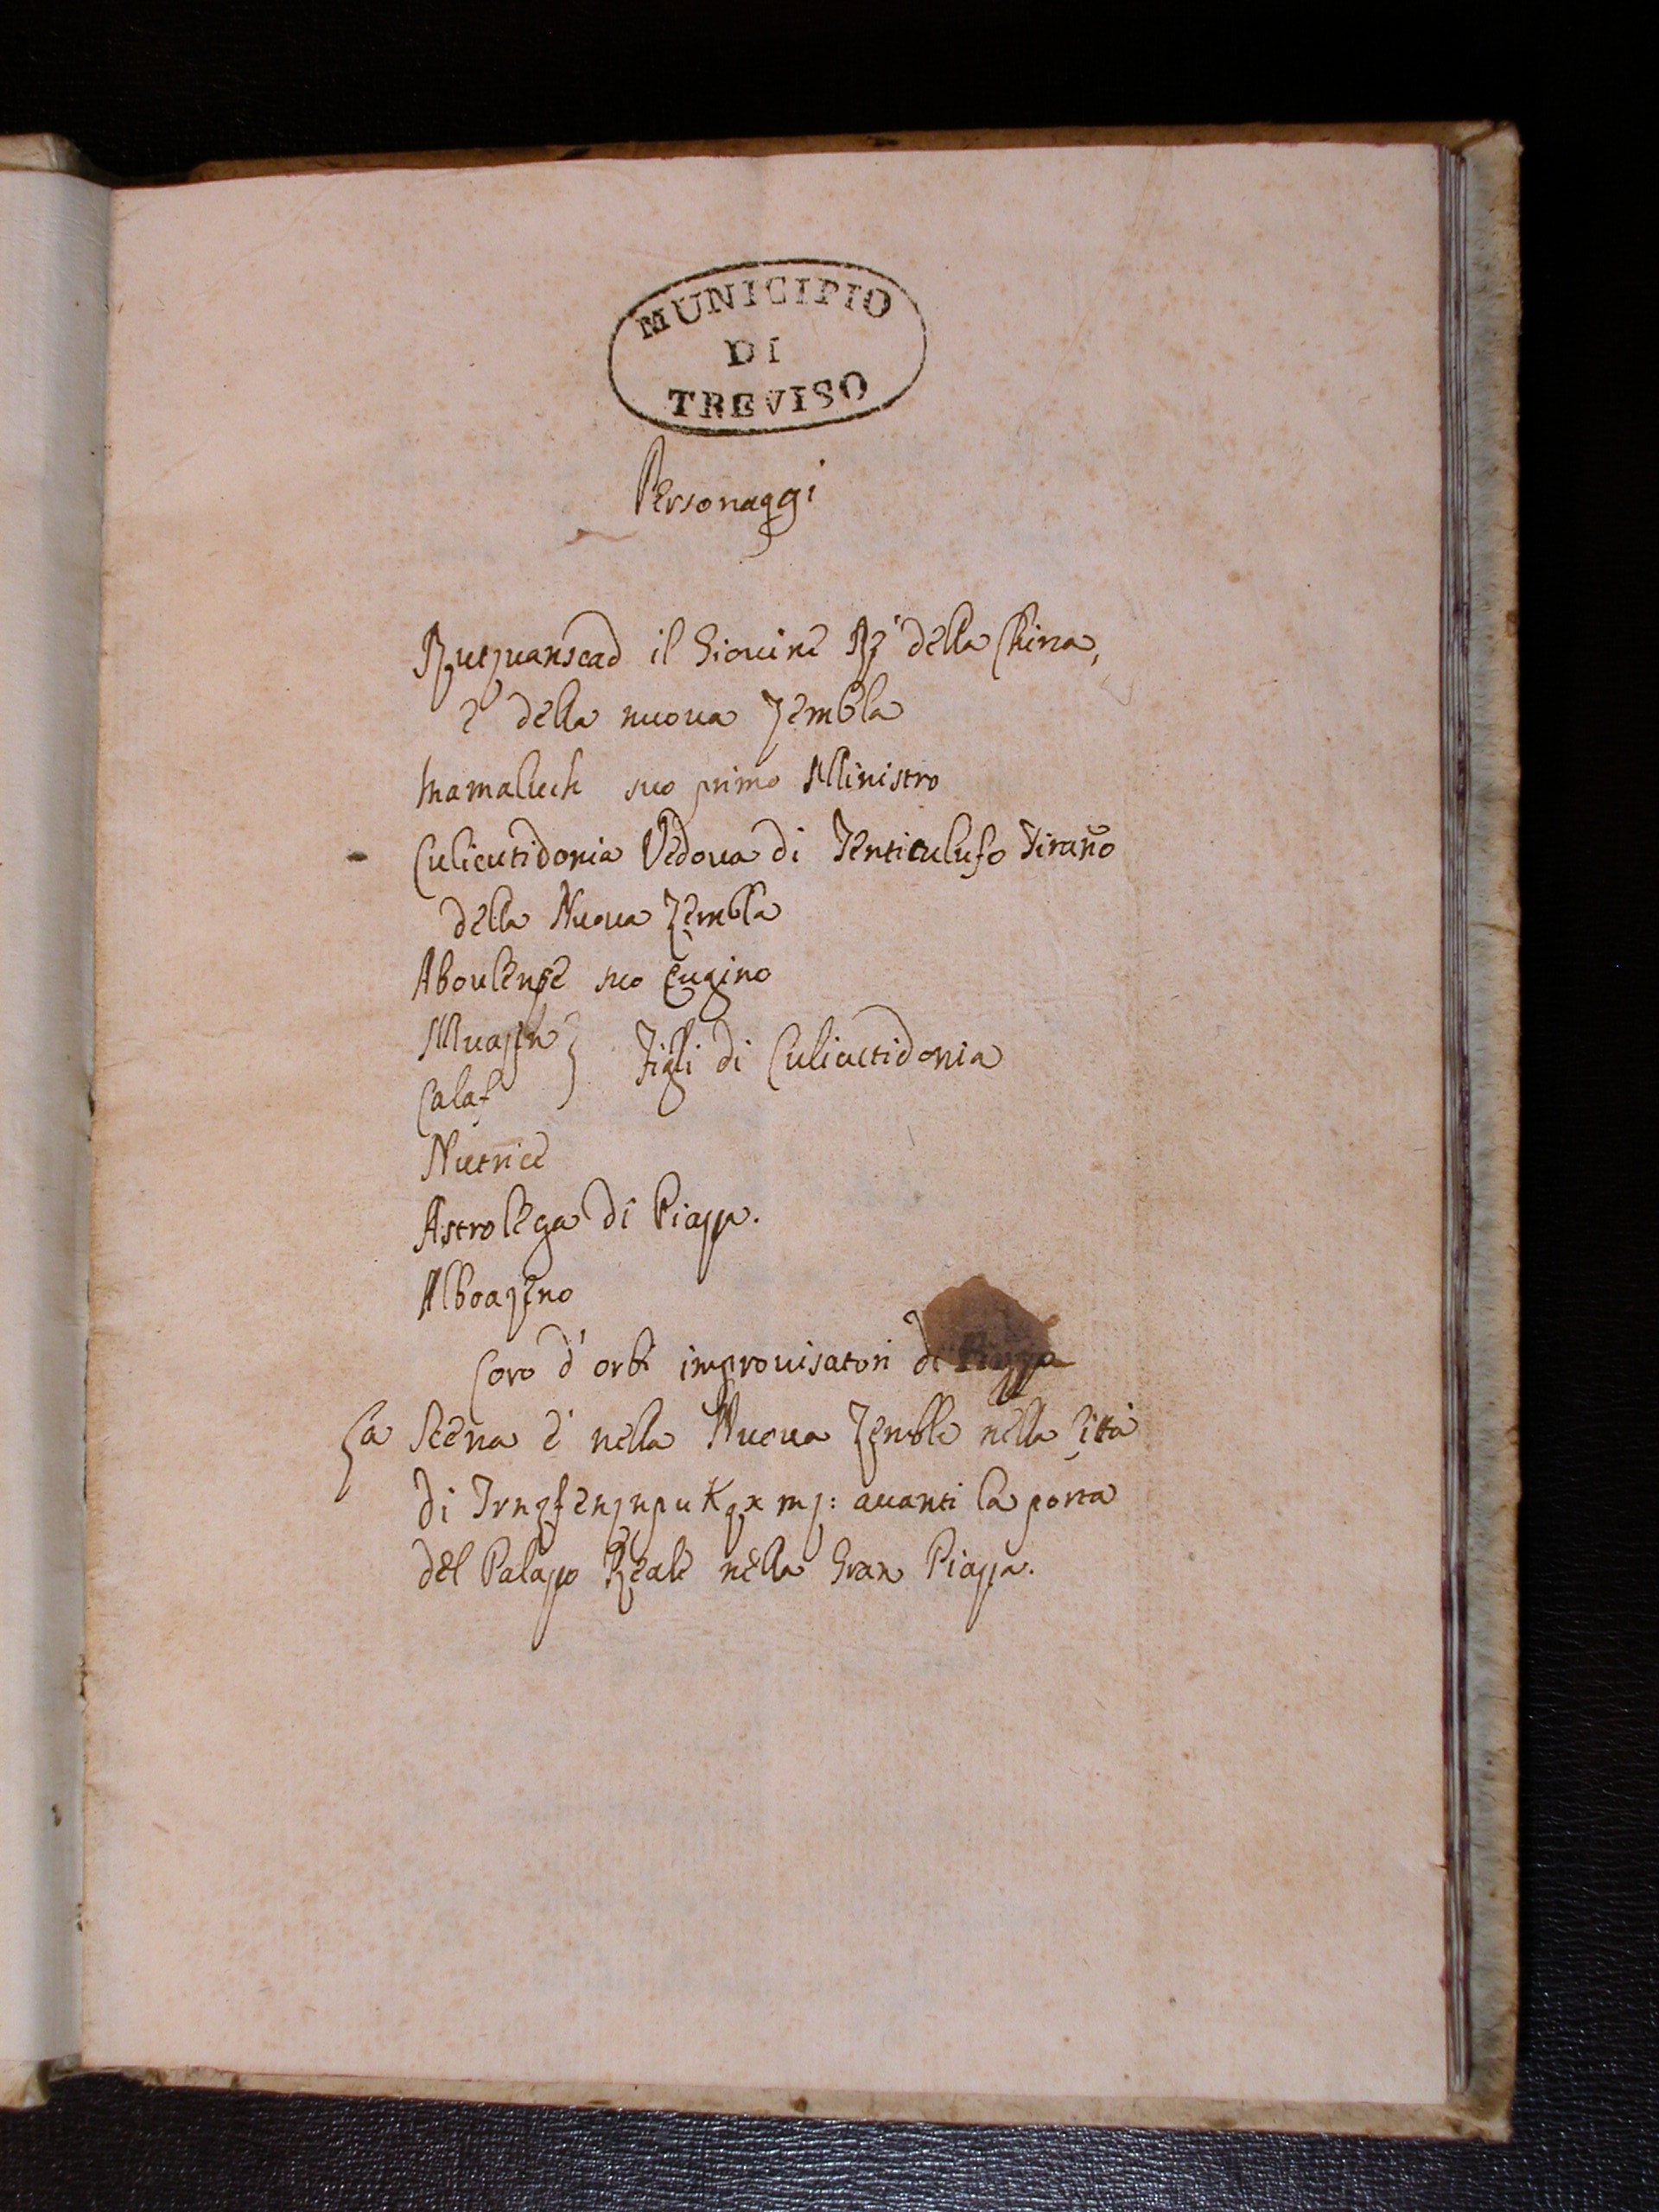 MUNICIPIO
DI
TREVISO
Personaggi
Rutzvanscad il Giouine Rè della China,
e della nuoua Zembla
Mamaluch suo primo Ministro
Culicutidonia Vedoua di Tenticulufo Tirano
della Nuoua Zembla
Aboulense suo Cugino
Muazzn
Calaf } Figli di Culicutidonia
Nutrice
Astrolega di Piazza.
Alboazeno
Coro d'orbi improuisatori di Piazza
La Scena è nella Nuoua Zembla nella Città
di auanti la porta
del Palazzo Reale nella Gran Piazza.